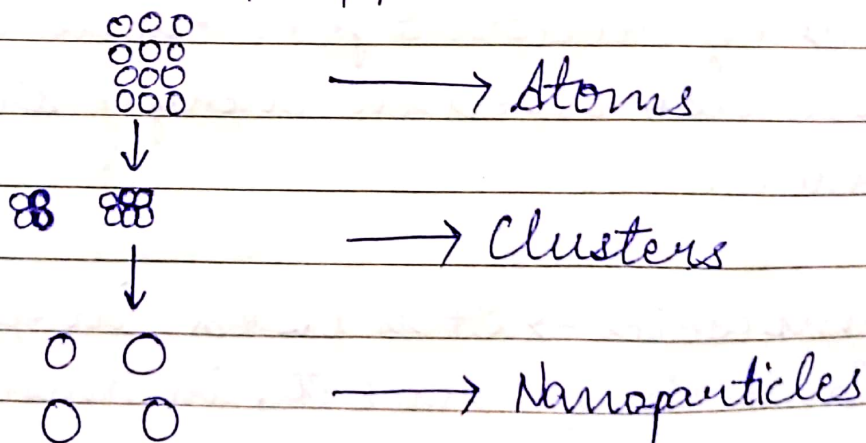 Atoms
Clusters
Nanoparticles